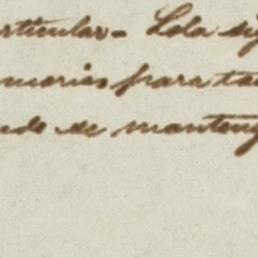 articular - Lola sig
morias para ta
ndo se manteng